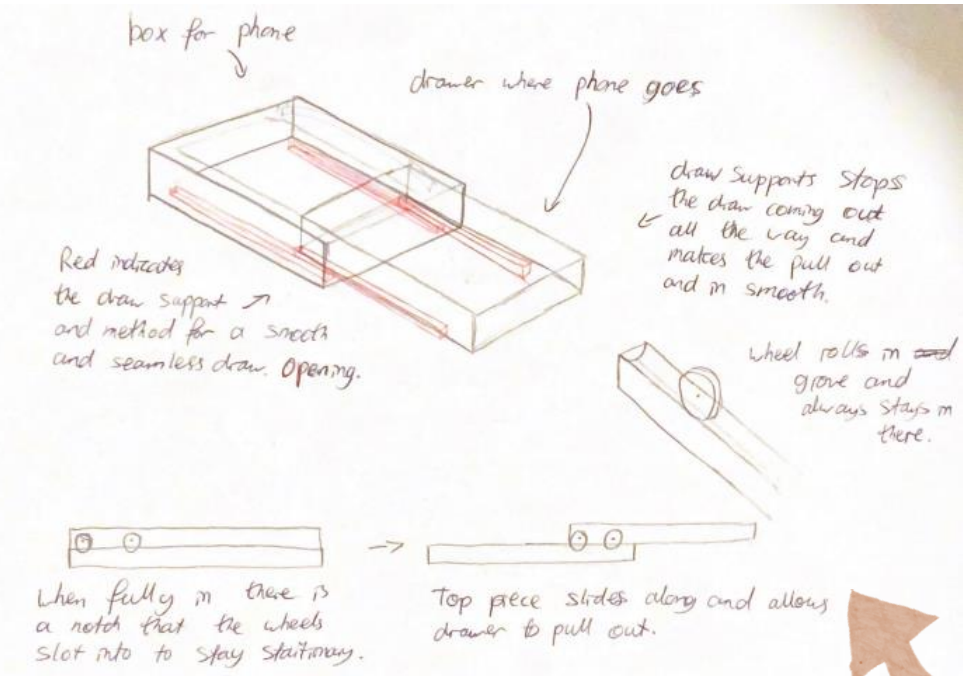 box for phone
drawer where phone goes
draw supports stops
the draw coming out
all the way and
makes the pull out
and in smooth.
Red indicates
the draw support
and method for a smooth
and seamless draw. Opening.
wheel rolls in and
grove and
always stays in
there.
when fully in there is
a notch that the wheels
slot into to stay staitionary.
Top piece slides along and allows
drawer to pull out.